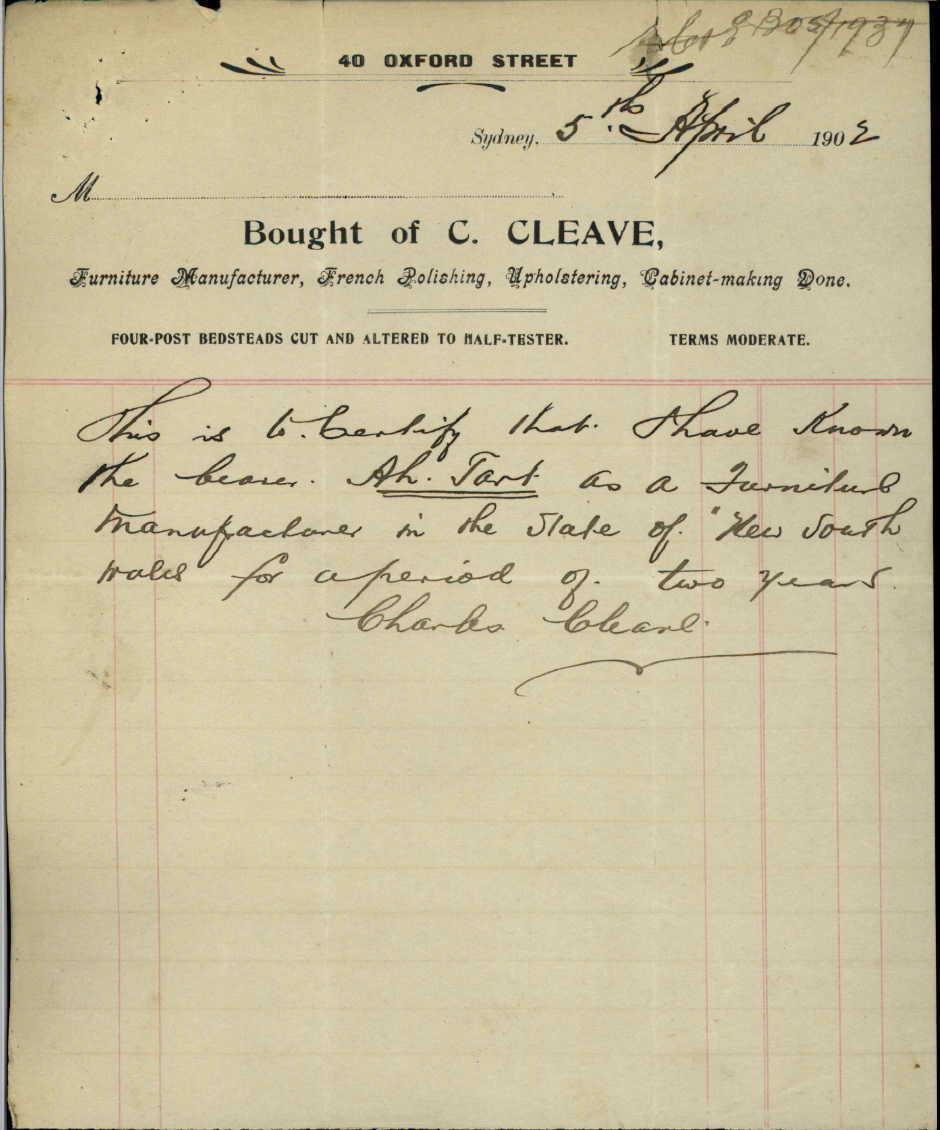 40 OXFORD STREET
Sydney, 5th April 1902
M
Bought of C. CLEAVE,
Furniture Manufacturer, French Polishing, Upholstering, Cabinet-making Done.
FOUR-POST BEDSTEADS CUT AND ALTERED TO HALF-TESTER. TERMS MODERATE.
This is to Certify that I have Known
the bearer. Ah. Tart as a Furniture
Manufacturer in the State of "New South
Wales for a period of two years.
Charles Cleave